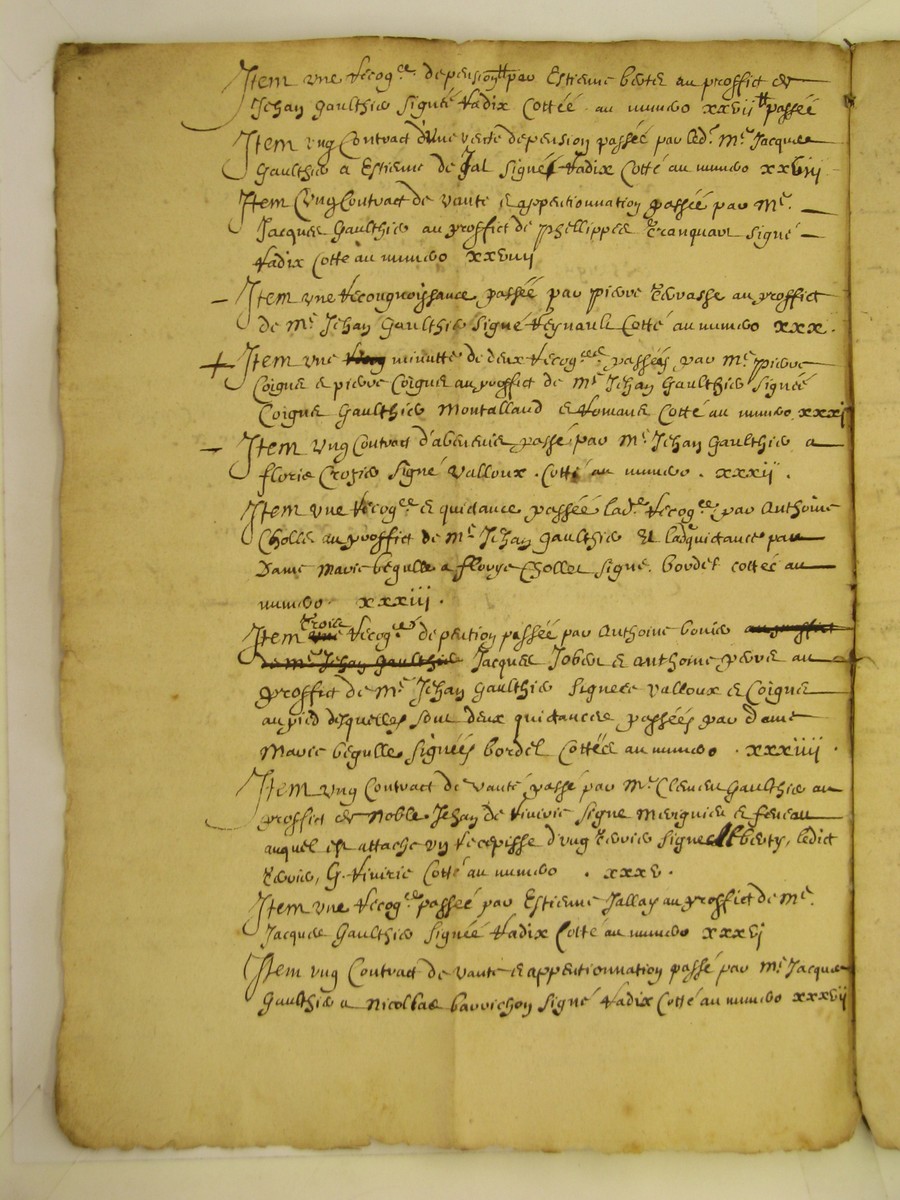 Item une recog.ce de pension par Estienne au proffict de
Jehan Gaulthier signée Radix cottée au numero xxvii passée
Item ung contract d'une vente de pension passée par led. Me Jacques
Gaulthier a Estienne de Jal signé Radix cotté au numero xxviii
Item ung contract de vante & appentionnation passée par Me.
Jacques Gaulthier au proffict de Phellippes Tranquart signé
Radix cotté au numero xxviiii
– Item une recougnoissance passée par Pierre au proffict
de Me Jehan Gaulthier signé Reynault cotté au numero xxx.
+ Item une minutte de deux recog.ces passées par Me Pierre
Coigne & Pierre Coigne au proffict de Me Jehan Gaulthier signée
Coigne Gaulthier Montalland & Romane cotté au numero xxxi
– Item ung contract d'abenevis passé par Me Jehan Gaulthier a
Floris signé Valloux. cotté au numero . xxxii .
Item une recog.ce & quictance passéé lad.e recog.ce par Anthoine
Chollet au proffict de Me Jehan Gaulthier & lad. quictance par
Dame Marie Begulle a Chollet signé. Bordel cottéé au
numero . xxxiii .
Item trois recog.ces de pention passée par Anthoine au proffict
de Me Jehan Gaulthier Jacques & Anthoine au
proffict de Me Jehan Gaulthier signees Valloux & Coigne
au pied desquelles sont deux quictances passées par Dame
Marie Begulle signées Bordel cottéé au numero . xxxiiii .
Item ung contract de vante passé par Me Clement Gaulthier au
proffict de Noble Jehan de signé &
auquel est attache un recepisse d'ung signé ledict
G. cotté au numero . xxxv .
Item une recog.ce passéé par Estienne Jallas au proffict de Me.
Jacques Gaulthier signéé Radix cotté au numero xxxvi
Item ung contract de vante & appentionnation passé par Me Jacques
Gaulthier a Nicollas Barrichon signé Radix cotté au numero xxxvii